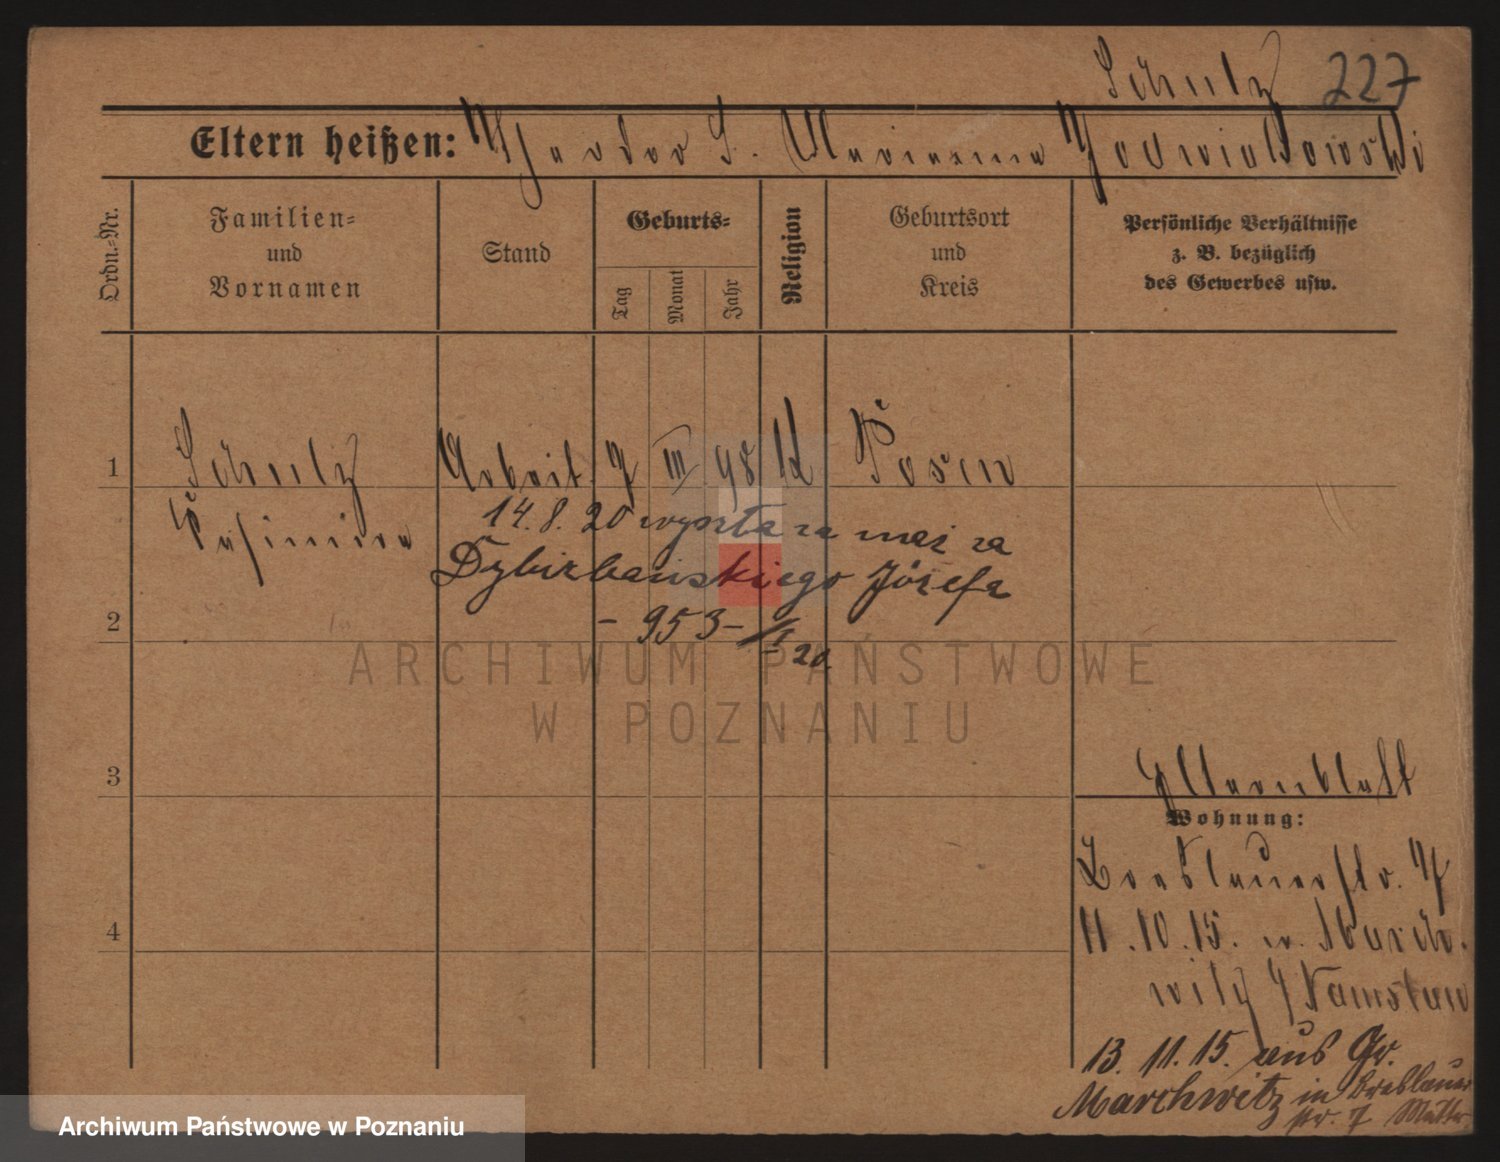 Schulz 227
Eltern heißen: Theodor S. Marianna Jodwiakowski
Ordn.=Nr.
Familien=
und
Vornamen
Stand
Geburts=
Tag
Monat
Jahr
Religion
Geburtsort
und
Kreis
Persönliche Verhältnisse
z. B. bezüglich
des Gewerbes usw.
1 Schulz Arbeit. 7 III 98 K Posen
Kasimira 14.8.20 wyszła za mąż za
Józefa
2 - 953 - 20.
ARCHIWUM PAŃSTWOWE
W POZNANIU
3
Wohnung:
Breslauerstr. 7
4 11.10.15. n. March.
witz Namslau
13.11.15. aus Gr.
Marchwitz in Breslauer
str. 7 Mutter
Archiwum Państwowe w Poznaniu